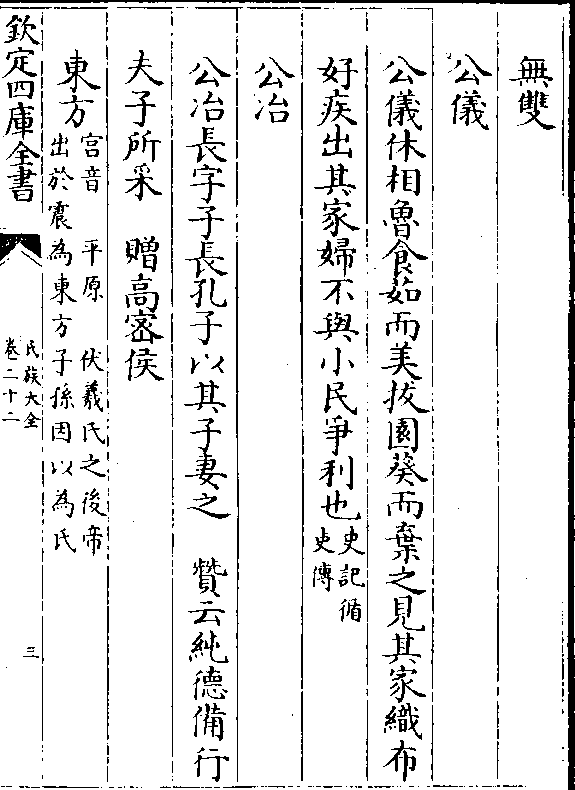 無雙
公儀
公儀休相魯食茹而美拔園葵而棄之見其家織布
好疾出其家婦不與小民爭利也史記循
吏傳
公冶
公冶長字子長孔子以其子妻之　贊云純德備行
夫子所采　贈高密侯
東方宫音　平原　伏羲氏之後帝
出於震為東方子孫因以為氏
欽定四庫全書
氏族大全
卷二十二
三